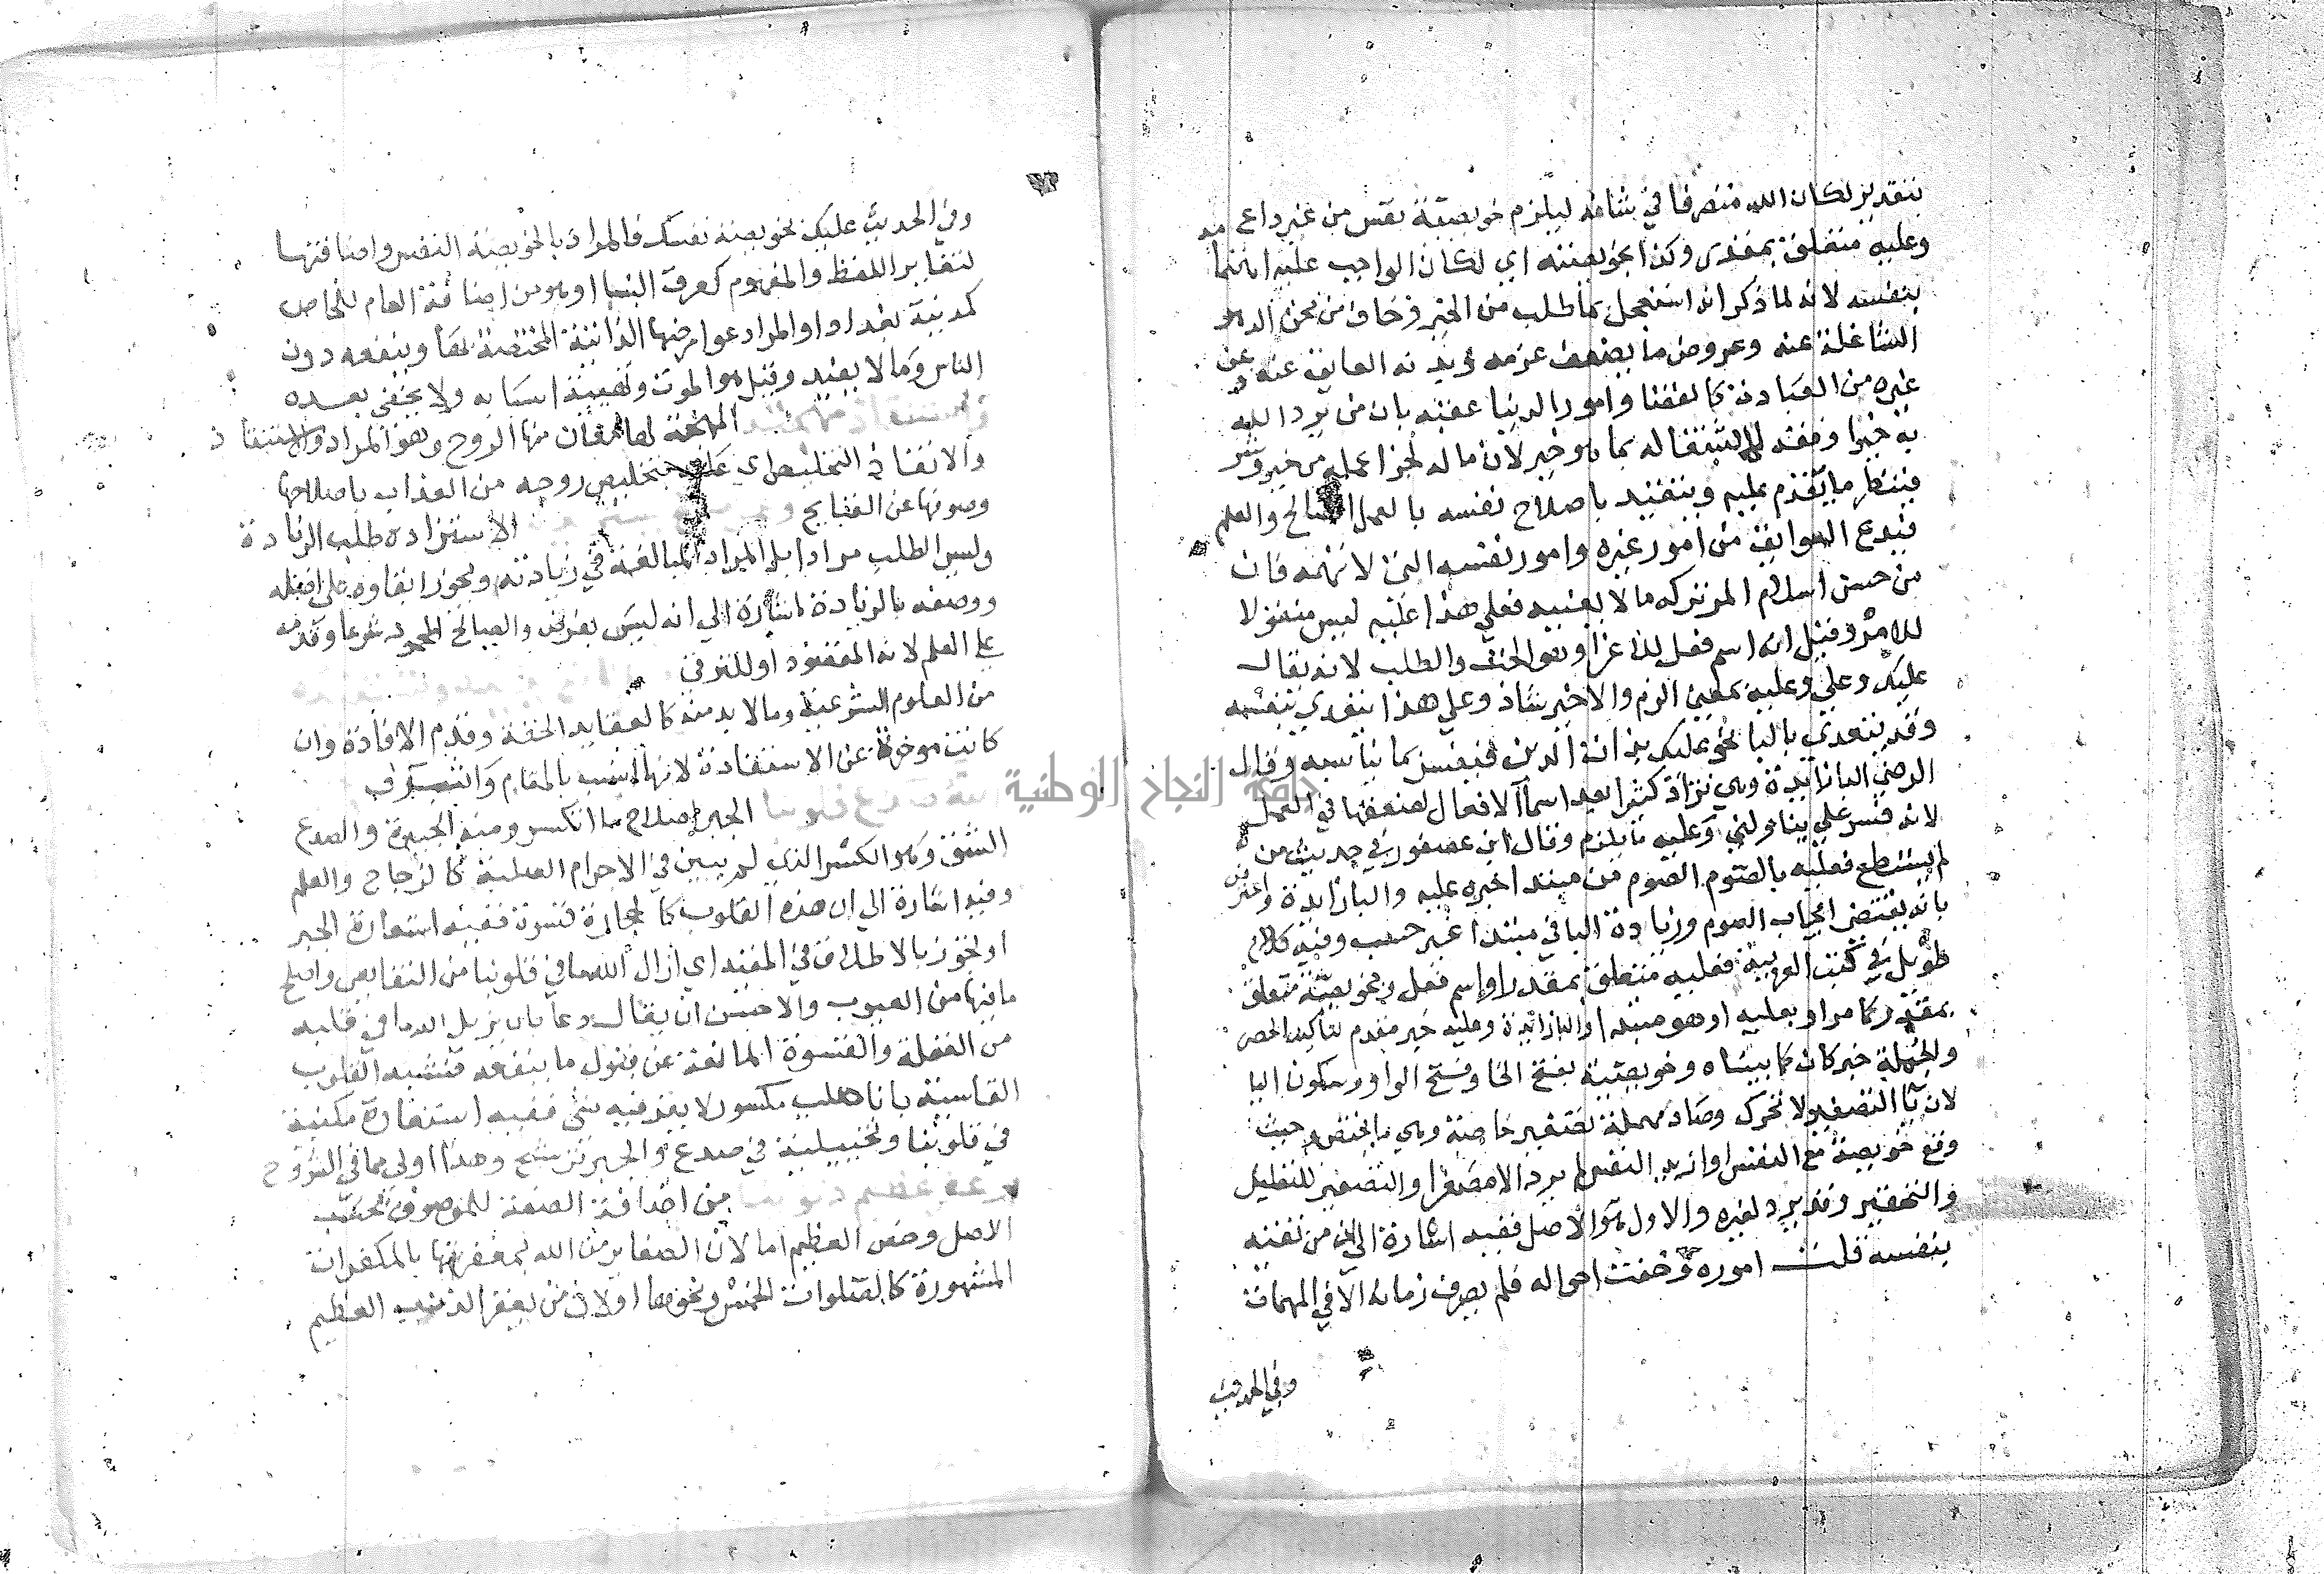 بتقدير لكان الله متصرفا في شانه ليلزم خويصة نفس من غير داع
وعليه متعلق بمقدر وكذا بخويصته اي لكان الواجب عليه
بنفسه لانه لما ذكر انه استعجل بما طلب من الخير وخاف من محن الدهر
الشاغلة عنه وعروض ما يضعف عزمه ويدفعه العايق عنه عن
غيره من العبادة كالقضا وامور الدنيا عقبه بان من يرد الله
به خيرا وفقه للاشتغاله بما هو خير لان ماله لجزا عمله من خير وشر
فينظر ما يقدم عليه ويتقيد باصلاح نفسه بالعمل الصالح والعلم
بتدع العوايق من امور غيره وامور نفسه التي لا تهمه فان
من حسن اسلام المرء تركه ما لا يعنيه فعلي هذا عليه ليس منقولا
للامر وقيل انه اسم فعل للاغرا وهو الحث والطلب لانه يقال
عليك وعلي وعليه بمعني الزم والاخير شاذ وعلي هذا يتعدي بنفسه
وقد يتعدي بالبا نحو عليك بذات الدين فيفسر بما يناسبه وقال
الرضي البا زايدة وهي تزاد كثيرا بعد اسما الافعال لضعفها في العمل
لانه فسر علي بناولني وعليه بليلزم وقال ابن عصفور في حديث من
لم يستطع فعليه بالصوم الصوم مبتدا خبره عليه والبا زايدة واعترض
بانه يقتضي ايجاب الصوم وزيادة البا في مبتدا غير حسب وفيه كلام
طويل في كتب العربية فعليه متعلق بمقدر او اسم فعل وبخويصة متعلق
بمقدر كما مر او بعليه او هو مبتدا والبا زائدة وعليه خبر مقدم لتأكيد الحصر
والجملة خبر كان كما بيناه وخويصة بفتح الخا وفتح الواو وسكون اليا
لان يا التصغير لا تحرك وصاد مهملة تصغير خاصة وهي ما يختص به حيث
وقع خويصة مع النفس او اريد النفس لم يرد الا مصغرا والتصغير للتقليل
والتحقير وقد يرد لغيره والاول هو الاصل ففيه اشارة الي ان من
بنفسه قلت اموره وخفت احواله فلم يصرف زمانه الا في المهمات
وفي الحديث
وفي الحديث عليك بخويصة نفسك فالمراد بالخويصة النفس واضافتها
لتغاير اللفظ والمفهوم كعرق النسا او هو من اضافة العام للخاص
كمدينة بغداد او المراد عوارضها الذاتية المختصة بها وينفعه دون
الناس وما لا يفيد وقيل هو الموت وتهيئة اسبابه ولا يخفي بعده
المهجة لها معان منها الروح وهو المراد والاستنقاذ
والانقاذ التخليص اي عليه بتخليص روحه من العذاب باصلاحها
وصونها عن القبايح الاستزادة طلب الزيادة
وليس الطلب مرادا بل المراد المبالغة في زيادته ويجوز ابقاوه علي اصله
ووصفه بالزيادة اشارة الي انه ليس بفرض والصالح المحمود شرعا وقدمه
علي العلم لانه المقصود او للترقي
من العلوم الشرعية وما لا بد منه كالعقايد الحقة وقدم الافادة وان
كانت موخرة عن الاستفادة لانها انسب بالمقام واشرف
الجبر اصلاح ما انكسر ومنه الجبيرة والصدع
الشق وهو الكسر الذي لم يبين في الاجرام الصلبة كالزجاج والعلم
وفيه اشارة الي ان هذه القلوب كالحجارة قسوة ففيه استعارة الجبر
او تجوز بالاطلاق في المقيد اي ازال الله ما في قلوبنا من النقايص واصلح
ما فيها من العيوب والاحسن ان يقال دعا بان يزيل الله ما في قلبه
من الغفلة والقسوة المانعة عن قبول ما ينفعه فشبه القلوب
القاسية بانا صلب مكسور لا يقر فيه شي ففيه استعارة مكنية
في قلوبنا وتخييلية في صدع والجبر ترشيح وهذا اولي مما في الشروح
من اضافة الصفة للموصوف بحسب
الاصل وخص العظيم اما لان الصغاير من الله بمغفرتها بالمكفرات
المشهورة كالصلوات الخمس ونحوها او لان من يغفر الذنب العظيم
جامعة النجاح الوطنية